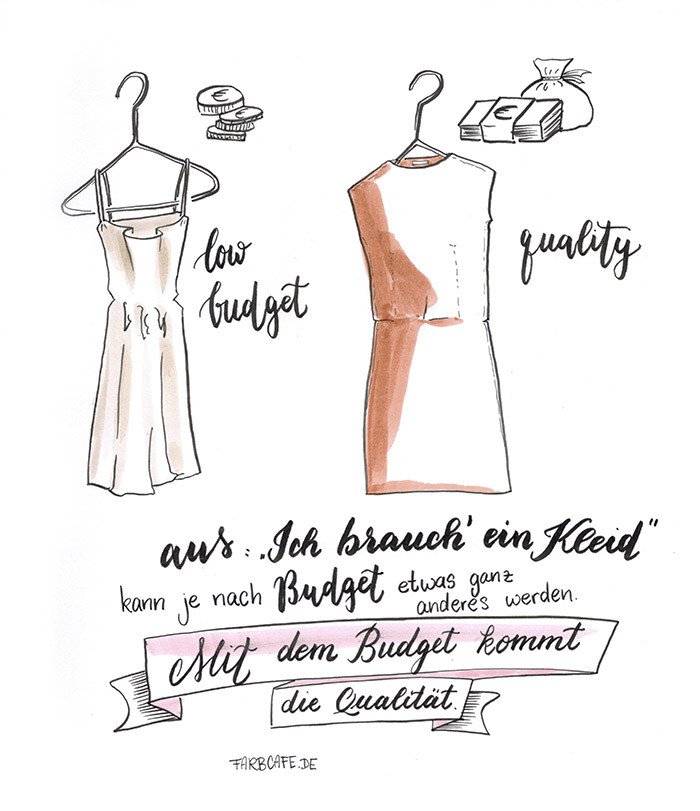 €
€
low
budget
quality
aus: „Ich brauch' ein Kleid"
kann je nach Budget etwas ganz
anderes werden.
Mit dem Budget kommt
die Qualität.
FARBCAFE.DE